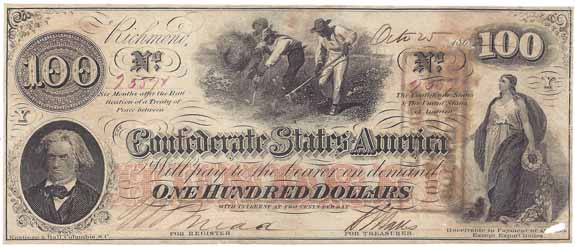 Richmond, Octo 25 186
100
No.
No.
100
Six Months after the Rati
fication of a Treaty of
Peace between
The Confederate States
& The United States
of America
Confederate States of America
Will pay to the bearer on demand
ONE HUNDRED DOLLARS
WITH INTEREST AT TWO CENTS PER DAY
FOR REGISTER
FOR TREASURER.
Keatinge & Ball, Columbia, S.C.
Receivable in Payment of
Except Export Duties